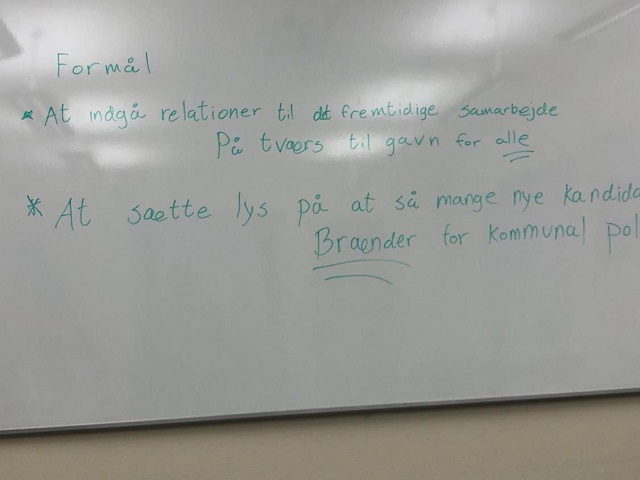 Formål
* At indgå relationer til det fremtidige samarbejde
På tværs til gavn for alle
* At sætte lys på at så mange nye kandida
Brænder for kommunal pol